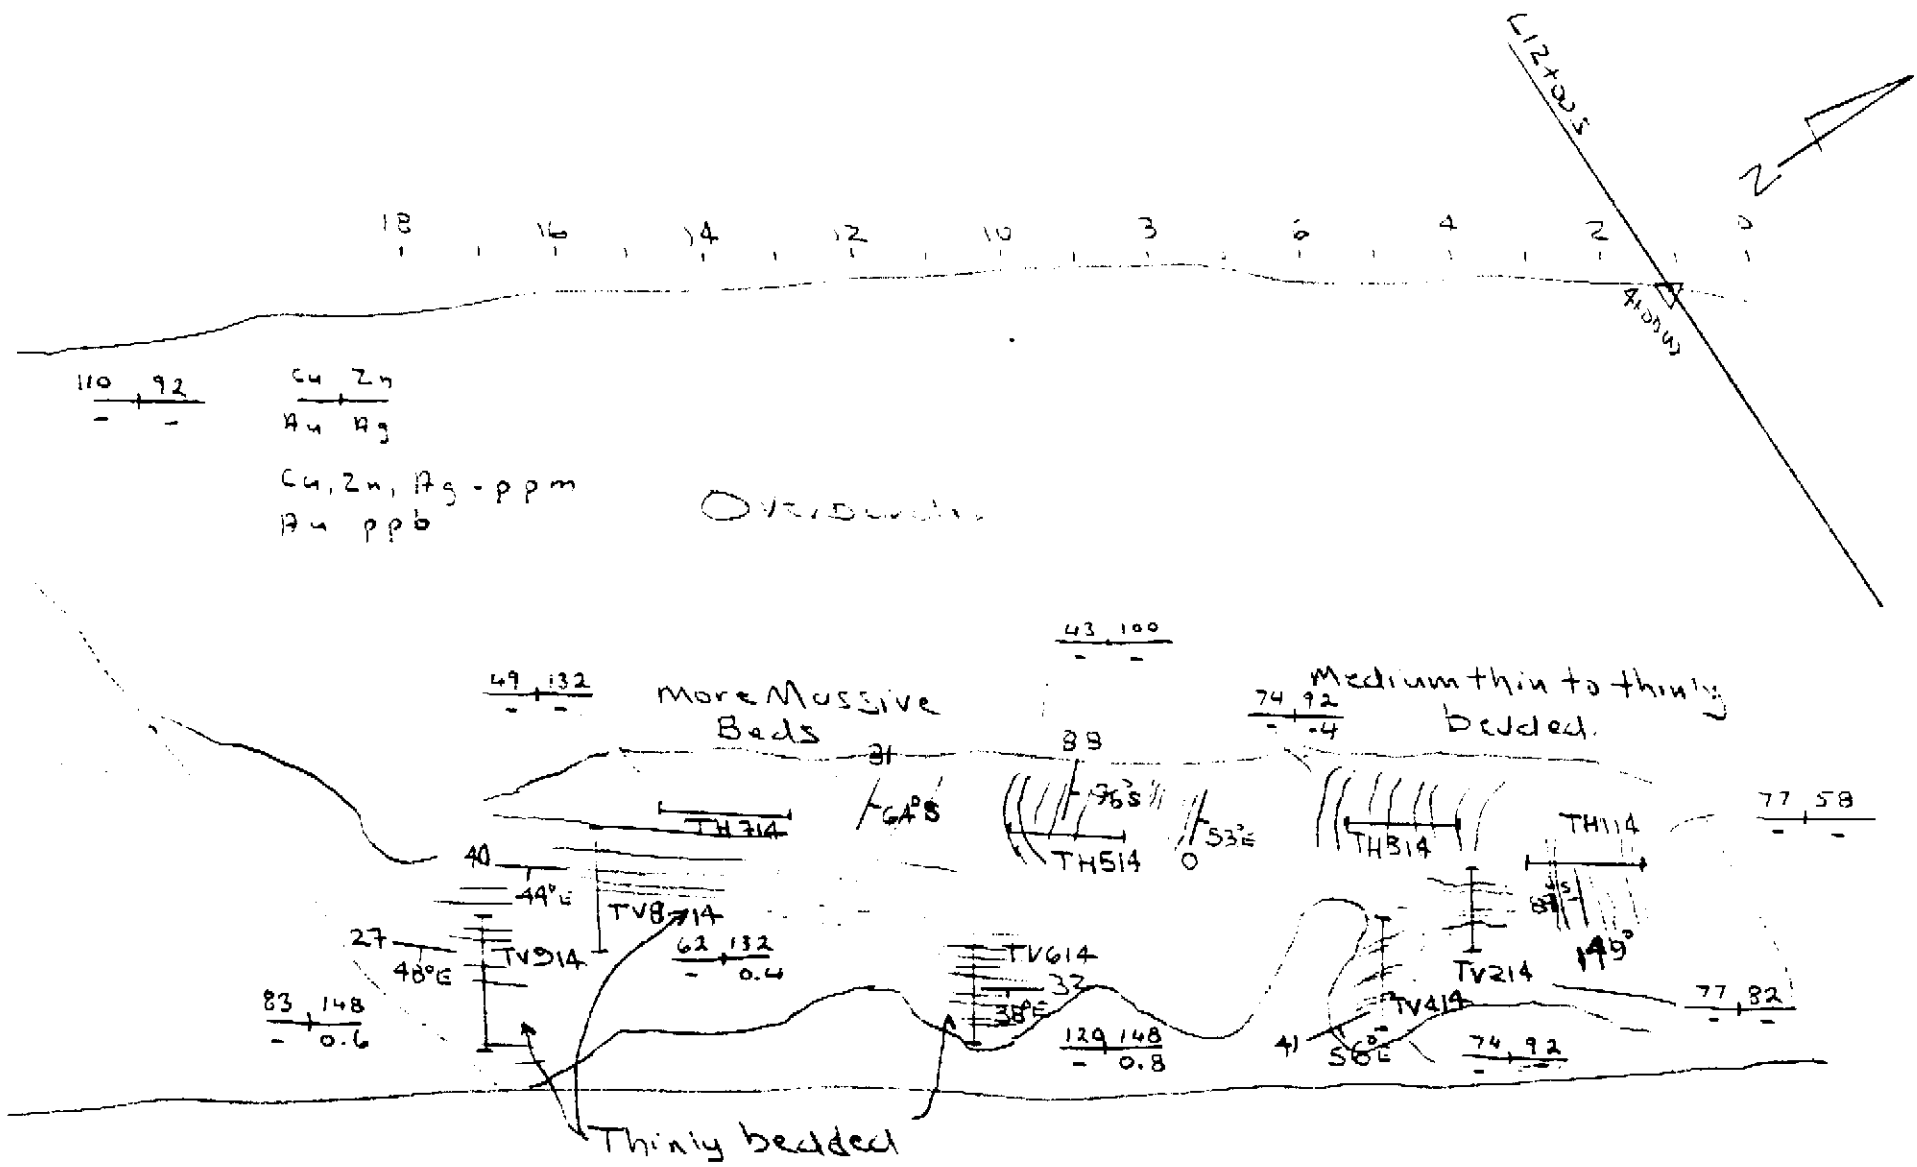 L12+00S
N
18 16 14 12 10 8 6 4 2 0
4+00W
110 92
- -
Cu Zn
Au Ag
Cu, Zn, Ag - ppm
Au ppb
Overburden
43 100
- -
49 132
- -
More Massive
Beds
74 92
- .4
Medium thin to thinly
bedded.
88
64°S
53°E
0
77 58
- -
TH714
TH514
TH314
TH114
40
44°E
TV8 14
27
48°E
TV914
62 132
- 0.4
TV614
32
38°E
TV214
149°
TV414
77 82
- -
83 148
- 0.6
120 148
- 0.8
41
56°E
74 92
- -
Thinly bedded